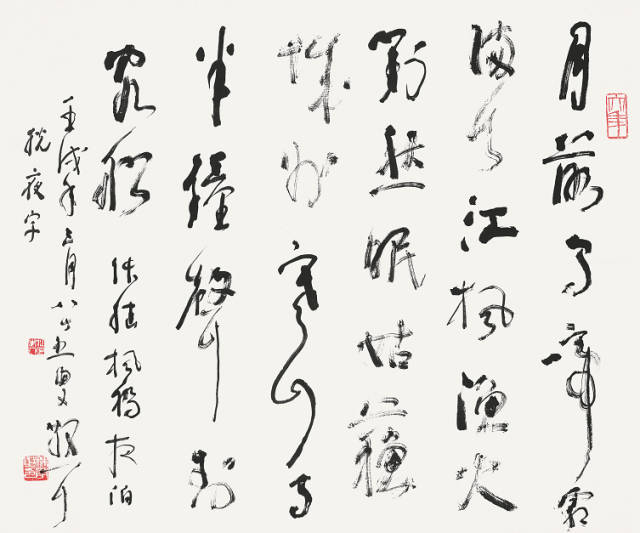 月落烏啼霜
滿天江楓漁火
對愁眠姑蘇
城外寒山寺
半鐘聲到
客船 張繼楓橋夜泊
壬戌年月八十五叟散耳
脱夜字